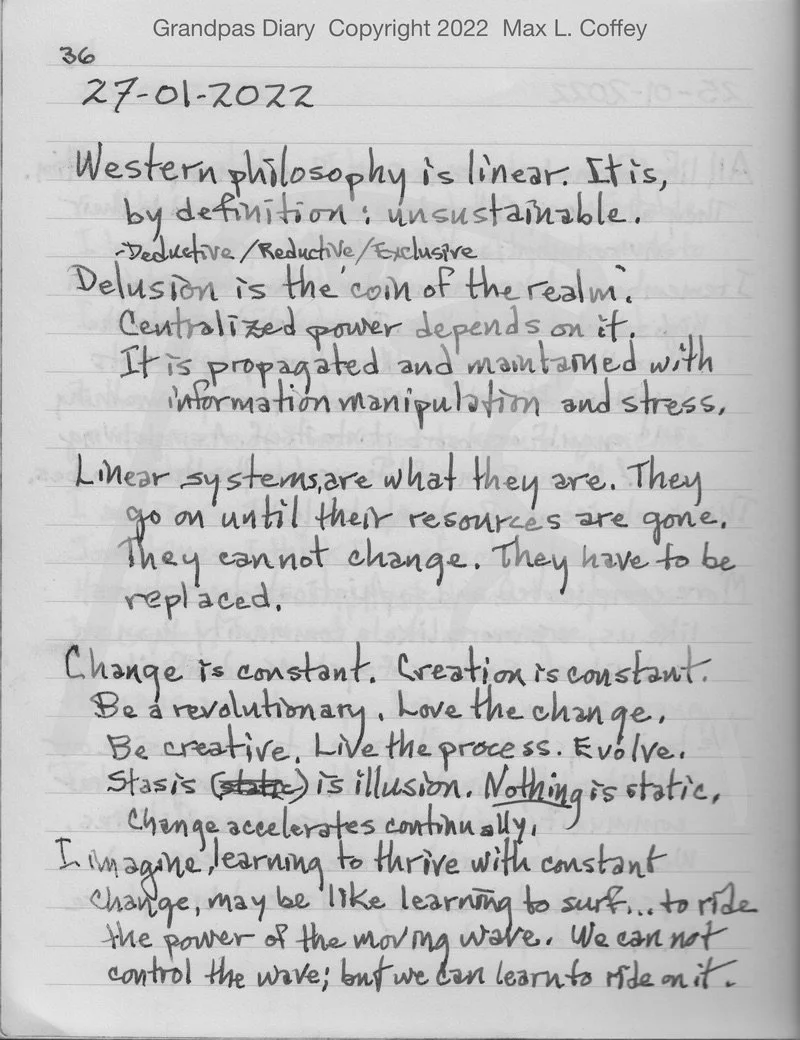 Grandpas Diary Copyright 2022 Max L. Coffey
36
27-01-2022
Western philosophy is linear. It is,
by definition: unsustainable.
-Deductive/Reductive/Exclusive
Delusion is the 'coin of the realm'.
Centralized power depends on it.
It is propagated and maintained with
information manipulation and stress.
Linear systems, are what they are. They
go on until their resources are gone.
They cannot change. They have to be
replaced.
Change is constant. Creation is constant.
Be a revolutionary. Love the change.
Be creative. Live the process. Evolve.
Stasis (static) is illusion. Nothing is static.
Change accelerates continually.
I imagine, learning to thrive with constant
change, may be like learning to surf... to ride
the power of the moving wave. We can not
control the wave; but we can learn to ride on it.